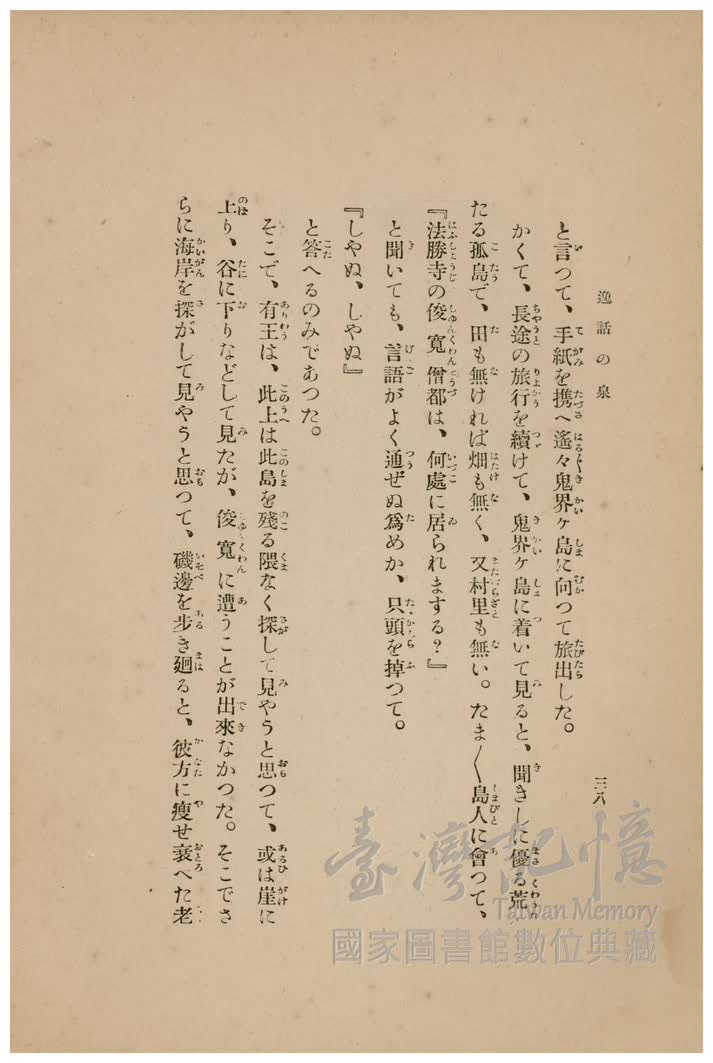 逸話の泉
三八
と言つて、手紙を携へ遙々鬼界ヶ島に向つて旅出した。
かくて、長途の旅行を續けて、鬼界ヶ島に着いて見ると、聞きしに優る荒
たる孤島で、田も無ければ畑も無く、又村里も無い。たま〱島人に會つて、
『法勝寺の俊寬僧都は、何處に居られまする?』
と聞いても、言語がよく通ぜぬ爲めか、只頭を掉つて。
『しやぬ、しやぬ』
と答へるのみであつた。
そこで、有王は、此上は此島を殘る隈なく探して見やうと思つて、或は崖に
上り、谷に下りなどして見たが、俊寬に遭うことが出來なかつた。そこでさ
らに海岸を探がして見やうと思つて、磯邊を步き廻ると、彼方に瘦せ衰へた老
臺灣記憶
Taiwan Memory
國家圖書館數位典藏